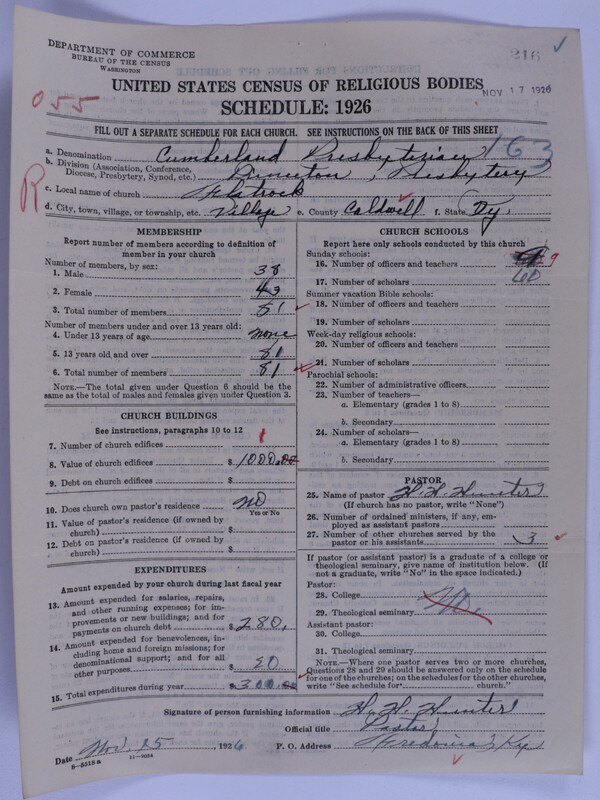 DEPARTMENT OF COMMERCE
BUREAU OF THE CENSUS
WASHINGTON
216
UNITED STATES CENSUS OF RELIGIOUS BODIES
NOV 17 1926
SCHEDULE: 1926
055
FILL OUT A SEPARATE SCHEDULE FOR EACH CHURCH. SEE INSTRUCTIONS ON THE BACK OF THIS SHEET
a. Denomination Cumberland Presbyterian 163
b. Division (Association, Conference, Diocese, Presbytery, Synod, etc.) Princeton, Presbytery
R
c. Local name of church Flatrock
d. City, town, village, or township, etc. Village e. County Caldwell f. State Ky,
MEMBERSHIP
Report number of members according to definition of
member in your church
Number of members, by sex:
1. Male 38
2. Female 43
3. Total number of members 81
Number of members under and over 13 years old:
4. Under 13 years of age none
5. 13 years old and over 81
6. Total number of members 81
NOTE.—The total given under Question 6 should be
same as the total of males and females given under Question 3.
CHURCH BUILDINGS
See instructions, paragraphs 10 to 12
7. Number of church edifices 1
8. Value of church edifices $ 1000.00
9. Debt on church edifices $
10. Does church own pastor's residence? NO
Yes or No
11. Value of pastor's residence (if owned by
church) $
12. Debt on pastor's residence (if owned by
church) $
EXPENDITURES
Amount expended by your church during last fiscal year
13. Amount expended for salaries, repairs,
and other running expenses; for im-
provements or new buildings; and for
payments on church debt $ 280.
14. Amount expended for benevolences, in-
cluding home and foreign missions; for
denominational support; and for all
other purposes $ 20
15. Total expenditures during year $ 300.00
CHURCH SCHOOLS
Report here only schools conducted by this church
Sunday schools:
16. Number of officers and teachers 9
17. Number of scholars 60
Summer vacation Bible schools:
18. Number of officers and teachers
19. Number of scholars
Week-day religious schools:
20. Number of officers and teachers
21. Number of scholars
Parochial schools:
22. Number of administrative officers
23. Number of teachers—
a. Elementary (grades 1 to 8)
b. Secondary
24. Number of scholars—
a. Elementary (grades 1 to 8)
b. Secondary
PASTOR
25. Name of pastor H. H. Hunter
(If church has no pastor, write "None")
26. Number of ordained ministers, if any, em-
ployed as assistant pastors
27. Number of other churches served by the
pastor or his assistants 3
If pastor (or assistant pastor) is a graduate of a college or
theological seminary, give name of institution below. (If
not a graduate, write "No" in the space indicated.)
Pastor:
28. College No.
29. Theological seminary
Assistant pastor:
30. College
31. Theological seminary
NOTE.—Where one pastor serves two or more churches,
Questions 28 and 29 should be answered only on the schedule
for one of the churches; on the schedules for the other churches,
write "See schedule for church."
Signature of person furnishing information H. H. Hunter
Official title Pastor
Date Nov. 15, 1926 P. O. Address Fredonia, Ky
8-5318 a